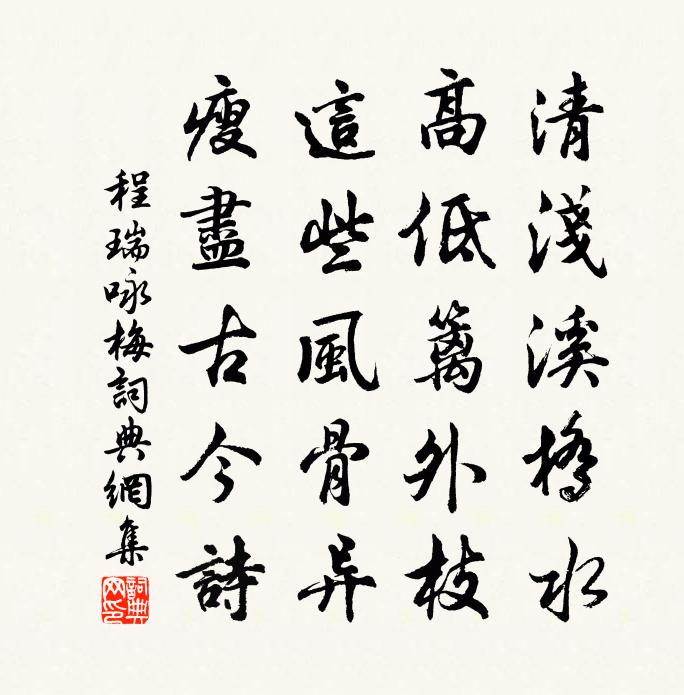 清淺溪橋水
高低籬外枝
這些風骨异
瘦盡古今詩
程瑞咏梅詞典網集
詞典網印